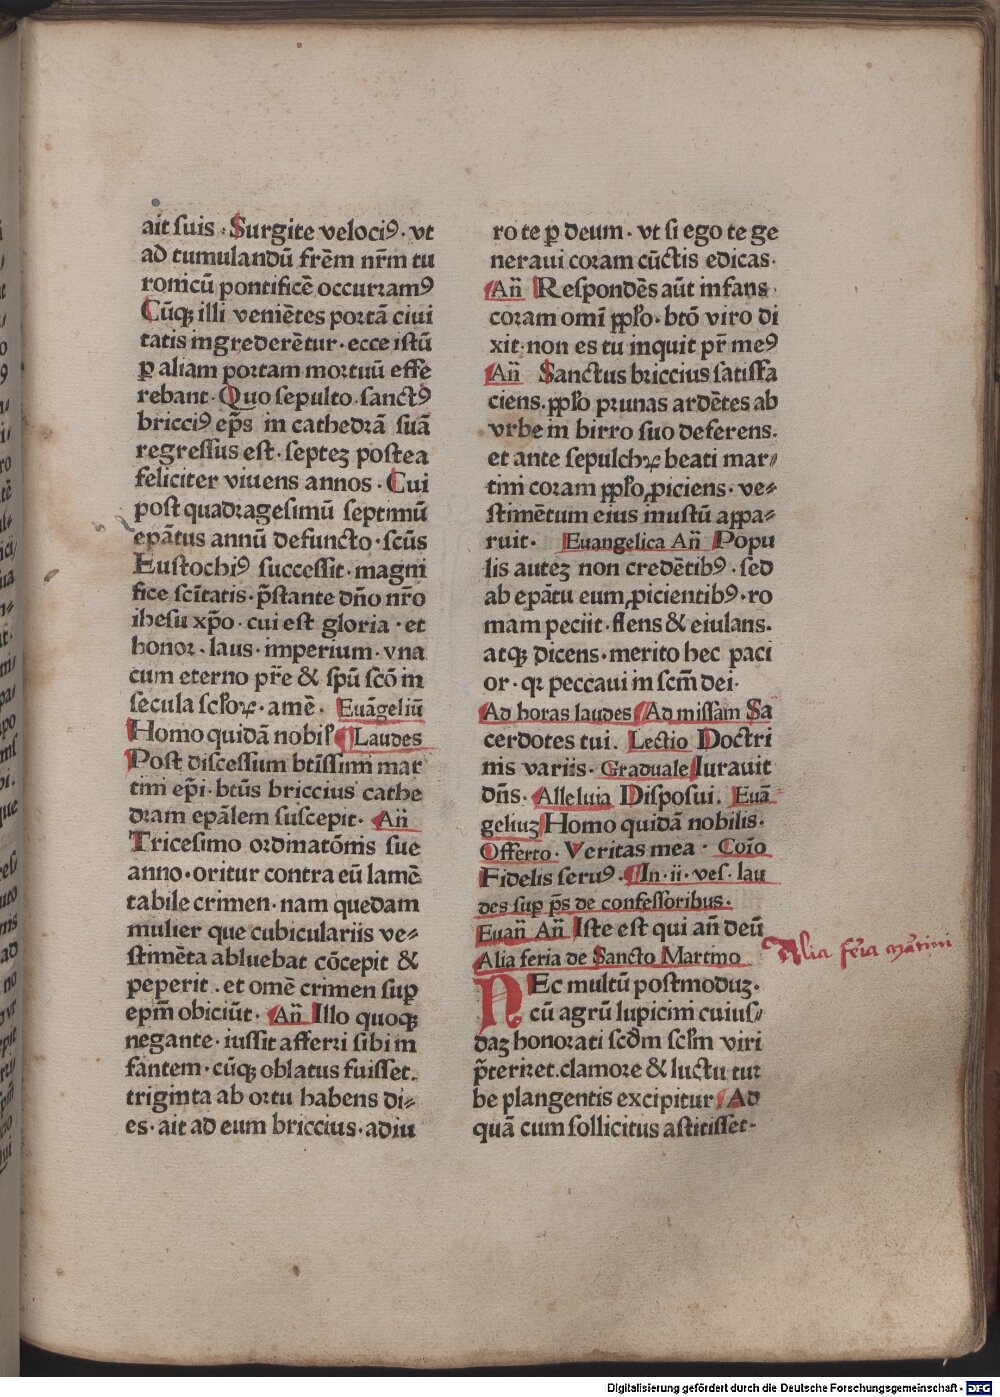 ait suis · Surgite velociꝰ · vt
ad tumulandū frēm nrm̄ tu
ronicū pontificē occurramꝰ
Cūqꝫ illi veniētes portā ciui
tatis ingrederētur · ecce istū
ꝑ aliam portam mortuū effe
rebant · Quo sepulto · sanctꝰ
bricciꝰ ep̄s in cathedrā suā
regressus est · septeꝫ postea
feliciter viuens annos · Cui
post quadragesimū septimū
ep̄atus annū defuncto · scūs
Eustochiꝰ successit · magni
fice sci̅tatis · p̄stante dn̄o nr̄o
ihesu xp̄o · cui est gloria · et
honor · laus · imperium · vna
cum eterno pr̄e & spū scō in
secula sclo̅ꝝ · amē · Euāgeliū
Homo quidā nobil̕ Laudes
Post discessum btīssimi mar
tini ep̄i · btūs briccius cathe
dram ep̄alem suscepit · An̄
Tricesimo ordinatōnis sue
anno · oritur contra eū lamē
tabile crimen · nam quedam
mulier que cubiculariis ve⸗
stimēta abluebat cōcepit &
peperit · et omē crimen suꝑ
ep̄m obiciūt · An̄ Illo quoqꝫ
negante · iussit afferri sibi in
fantem · cūqꝫ oblatus fuisset.
triginta ab ortu habens di⸗
es · ait ad eum briccius · adiu
ro te ꝑ deum · vt si ego te ge
neraui coram cūctis edicas ·
An̄ Respondēs aūt infans
coram omī pp̄lo · btō viro di
xit: non es tu inquit pr̄ meꝰ
An̄ Sanctus briccius satisfa
ciens · pp̄lo prunas ardētes ab
vrbe in birro suo deferens.
et ante sepulchꝝ beati mar⸗
tini coram pp̄lo ꝓiciens · ve⸗
stimētum eius inustū appa⸗
ruit · Euangelica An̄ Popu
lis auteꝫ non credētibꝰ · sed
ab ep̄atu eum ꝓicientibꝰ · ro
mam peciit · flens & eiulans.
atqꝫ dicens · merito hec paci
or · qꝛ peccaui in scm̄ dei ·
Ad horas laudes Ad missam Sa
cerdotes tui. Lectio Doctri
nis variis · Graduale Iurauit
dn̄s. Alleluia Disposui. Euā
geliuꝫ Homo quidā nobilis ·
Offerto · Veritas mea · Coīo
Fidelis seruꝰ · In · ii · ves · lau
des sup ps̄ de confessoribus ·
Euan̄ An̄ Iste est qui an̄ deū
Alia feria de Sancto Martino
Alia feria martini
NEc multū postmoduꝫ ·
cū agrū lupicini cuius⸗
daꝫ honorati scd̄m scl̄m viri
p̄teriret. clamore & luctu tur
be plangentis excipitur Ad
quā cum sollicitus astitisset ·
Digitalisierung gefördert durch die Deutsche Forschungsgemeinschaft - DFG